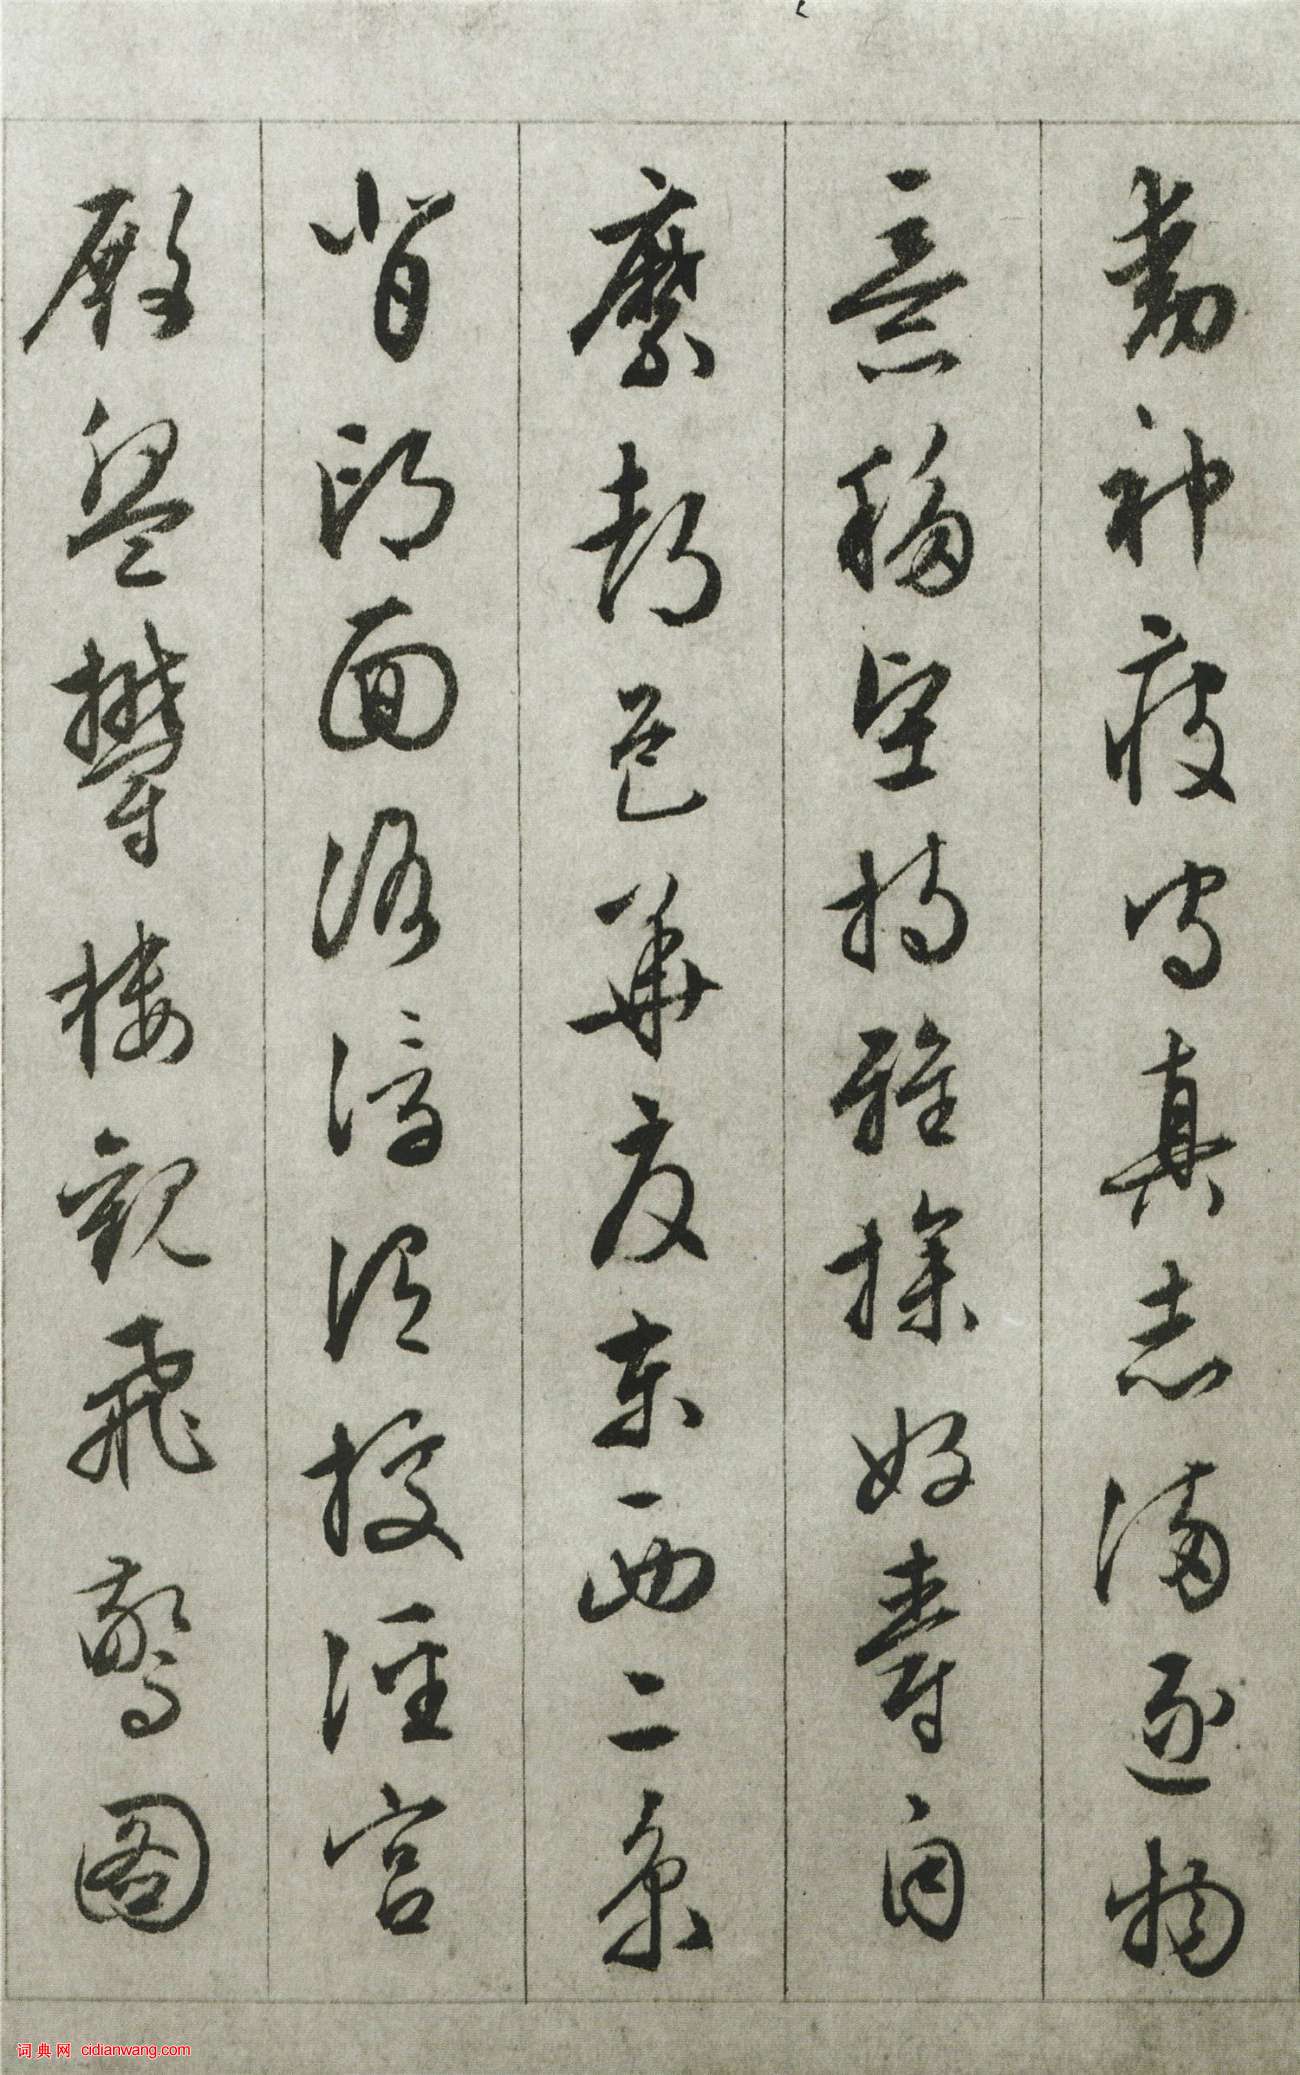 動神疲守真志滿逐物
意移堅持雅操好爵自
縻都邑華夏東西二京
背邙面洛浮渭據涇宮
殿盤鬱樓觀飛驚圖
词典网 cidianwang.com